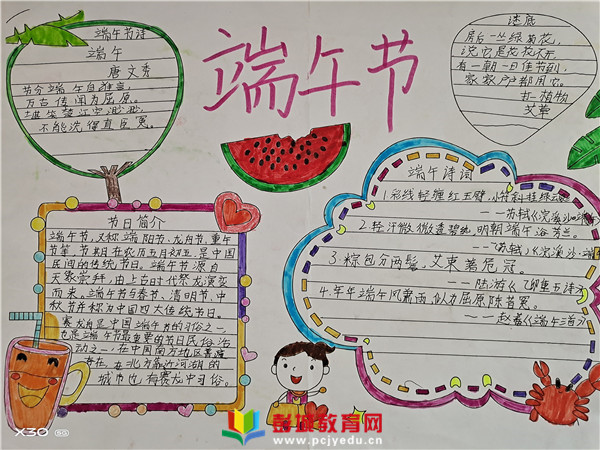 端午节
端午节诗
端午
唐 文秀
节分端午自谁言,
万古传闻为屈原。
堪笑楚江空渺渺,
不能洗得直臣冤。
谜底
房后一丛绿菊花,
说它是花花不开,
有一朝一日佳节到,
家家户户都用它。
打一植物
艾草
节日简介
端午节,又称端阳节、龙舟节、重午
节等,节期在农历五月初五,是中国
民间的传统节日。端午节源自
天象崇拜,由上古时代祭龙演变
而来。端午节与春节、清明节、中
秋节并称为中国四大传统节日。
赛龙舟是中国端午节的习俗之一
也是端午节最重要的节日民俗活
动之一,在中国南方地区
存在,在北方靠近河湖的
城市也有赛龙舟习俗。
端午诗词
1.彩线轻缠红玉臂,小符斜挂绿云鬟
——苏轼《浣溪沙
2.轻汗微微透碧纨,明朝端午浴芳兰。
——苏轼《浣溪沙·端午
3.粽包分两髻,艾束著危冠。
——陆游《乙卯重五诗》
4.年年端午风兼雨,似为屈原陈昔冤。
——赵蕃《端午三首》
彭城教育网
www.pcjyedu.cn
X30